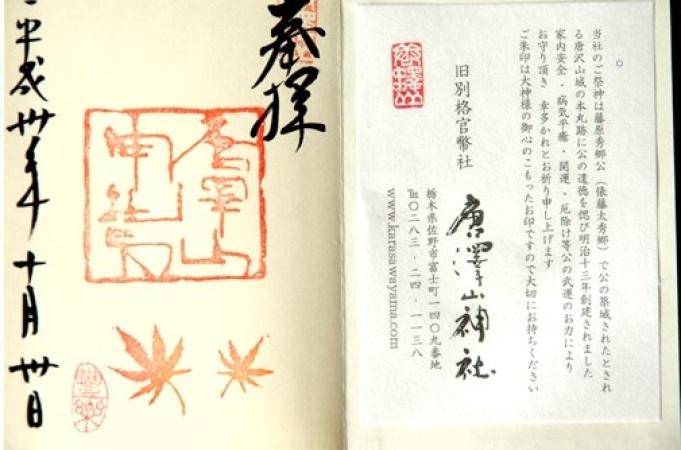 当社のご祭神は藤原秀郷公(俵藤太秀郷)で公の築城されたとされ
る唐沢山城の本丸跡に公の遺徳を偲び明治十三年創建されました
家内安全・病気平癒・開運・厄除け等公の武運のお力により
お守り頂き 幸多かれとお祈り申し上げます
ご朱印は大神様の御心のこもったお印ですので大切にお持ちください
旧別格官幣社
唐澤山神社
栃木県佐野市富士町一四〇九番地
℡〇二八三・二四・一一三八
www.karasawayama.com
奉拝
唐澤山
神社
平成卅年十月卅日